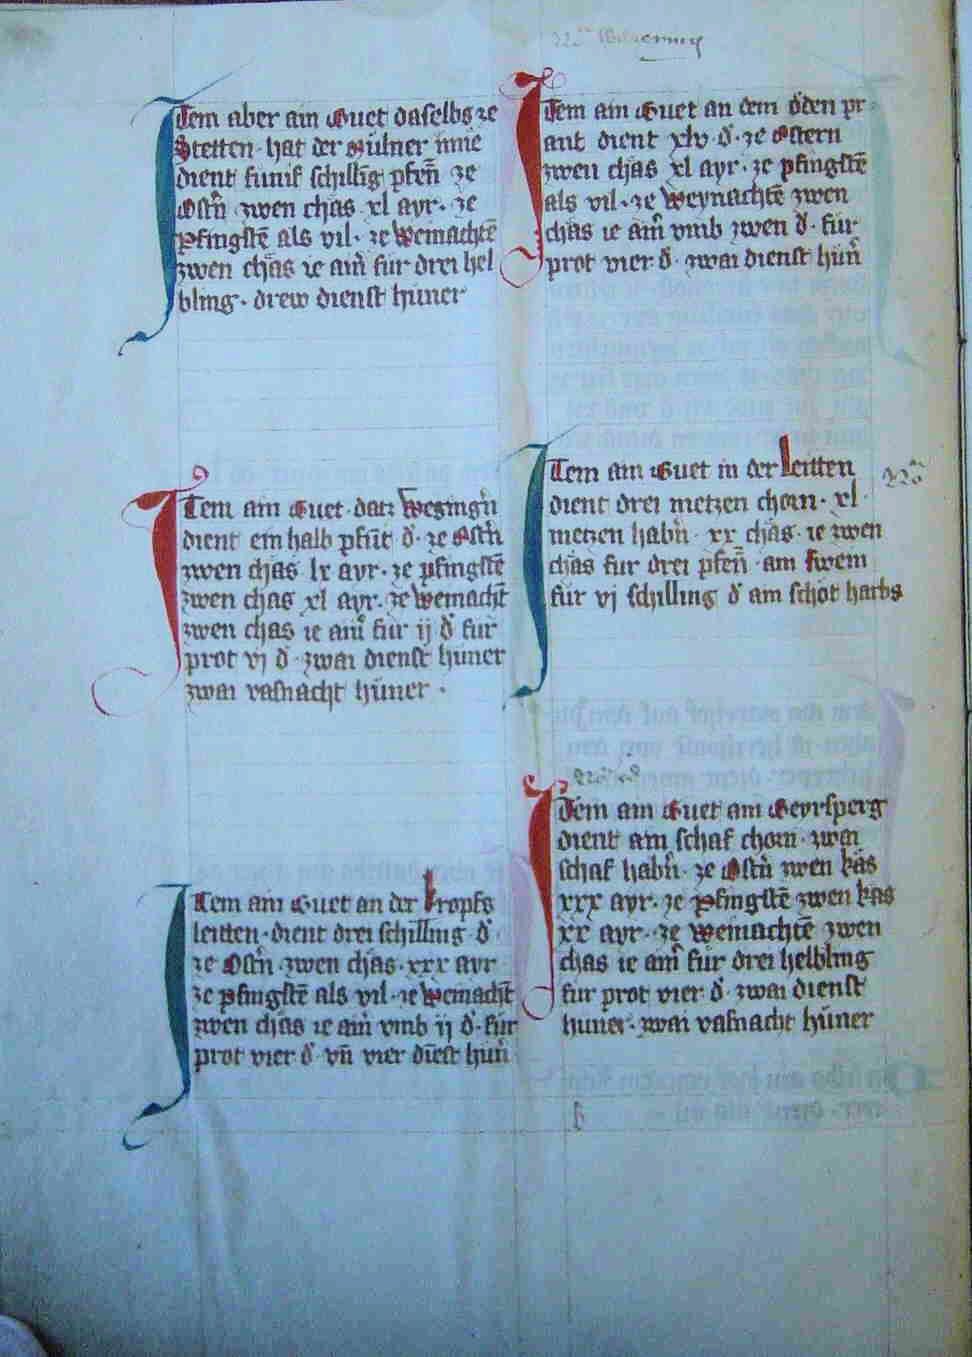 Item aber ain Guet daselbs ze
Stetten · hat der Mülner inne
dient fumf schillīg pfeñ ze
Ostn̄ zwen chäs xl ayr · ze
Pfingstē als vil · ze Weinachtē
zwen chäs ie ain̄ für drei hel
bling · drew dienst hüner
Item ain Guet datz Wesingn̄
dient ein halb pfūt d · ze Ostn̄
zwen chäs lx ayr · ze pfingstē
zwen chas xl ayr · ze Weinacht̄
zwen chas ie ain̄ für ij d für
prot vj d · zwai dienst hüner
zwai vasnacht hüner ·
Item ain Guet an der kropfs
leitten · dient drei schilling d
ze Ostn̄ zwen chäs · xxx ayr
ze pfingstē als vil · ze Weinacht̄
zwen chäs ie ain̄ vmb ij d · für
prot vier d vn̄ vier diēst hün̄
Item ain Guet an dem öden pr
ant dient xlv d · ze Ostern
zwen chäs xl ayr · ze pfingstē
als vil · ze Weynachtē zwen
chäs ie ain̄ vmb zwen d · für
prot vier d · zwai dienst hün̄
Item ain Guet in der Leitten
dient drei metzen chorn · xl
metzen habn̄ · xx chäs · ie zwen
chäs fur drei pfeñ · ain swein
für vj schilling d ain schöt harbs
Item ain Guet am Geyrsperg
dient ain schaf chorn · zwai
schaf habn̄ · ze Ostn̄ zwen käs
xxx ayr · ze Pfingstē zwen käs
xx ayr · ze Weinachtē zwen
chäs ie ain̄ für drei helbling
fur prot vier d · zwai dienst
huner · zwai vasnacht hüner